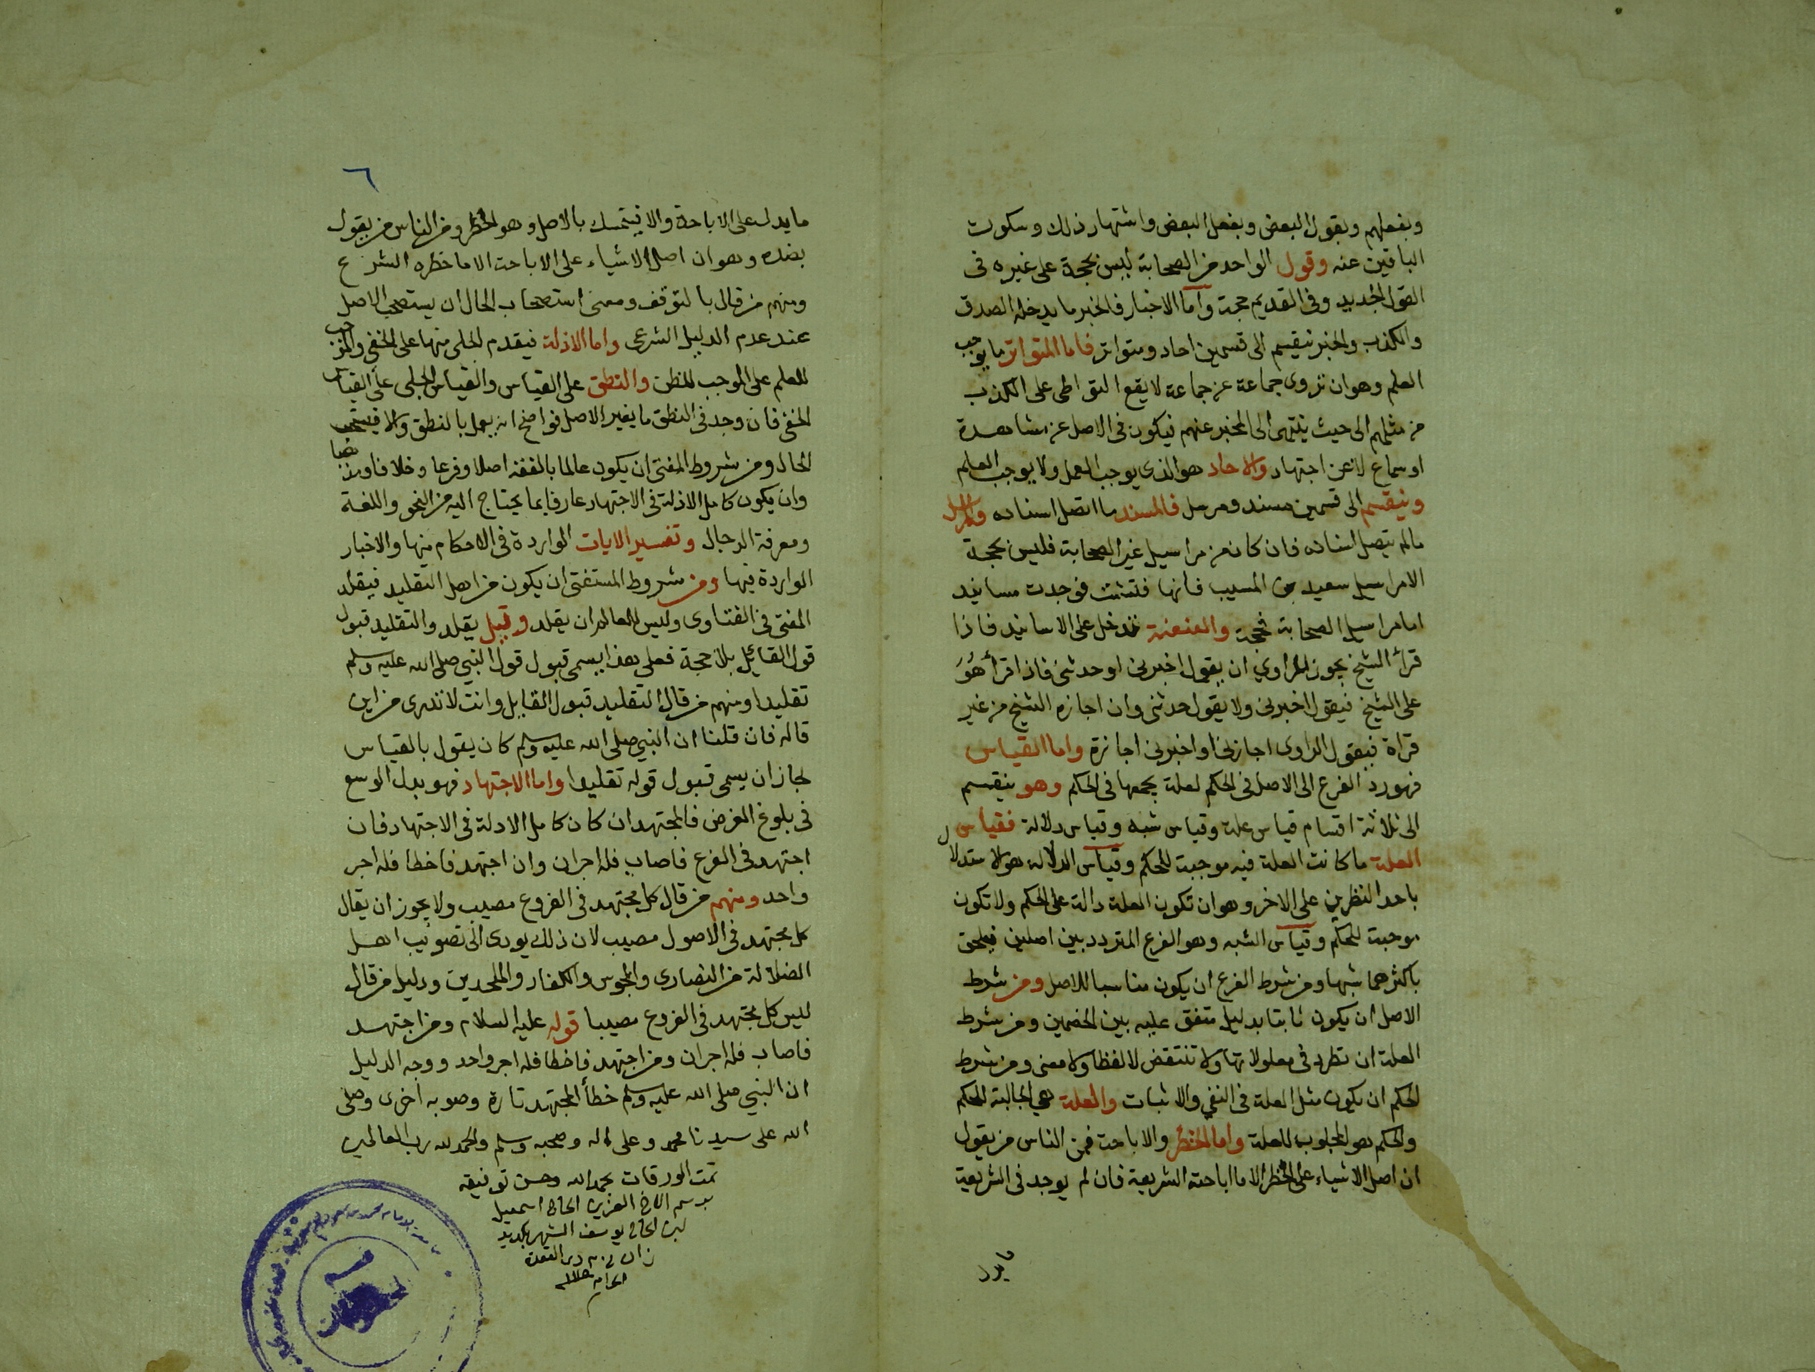 وبفعلهم وبقول البعض وبفعل البعض واشتهار ذلك وسكوت
الباقين عنه وقول الواحد من الصحابة ليس بحجة على غيره في
القول الجديد وفي القديم حجة واما الاخبار فالخبر ما يدخله الصدق
والكذب والخبر ينقسم الى قسمين احاد ومتواتر فاما المتواتر ما يوجب
العلم وهو ان تروى جماعة عن جماعة لا يقع التواطي على الكذب
من مثلهم الى حيث ينتهى الى المخبر عنهم فيكون في الاصل عن مشاهدة
او سماع لا عن اجتهاد والاحاد هو الذى يوجب العمل ولا يوجب العلم
وينقسم الى قسمين مسند ومرسل فالمسند ما اتصل اسناده والمرسل
مالم يتصل اسناده فان كان من مراسيل غير الصحابة فليس بحجة
الا مراسيل سعيد بن المسيب فانها فتشت فوجدت مسانيد
اما مراسيل الصحابة فحجة والعنعنة تدخل على الاسانيد فاذا
قرأ الشيخ يجوز للراوي ان يقول اخبرنى او حدثنى فاذا قرأ هُوَ
على الشيخ فيقول اخبرنى ولا يقول حدثنى وان اجازه الشيخ من غير
قراة فيقول الراوى اجازنى او اخبرنى اجازة واما القياس
فهو رد الفرع الى الاصل فى الحكم لعلة تجمعها فى الحكم وهو ينقسم
الى ثلاثة اقسام قياس علة وقياس شبه وقياس دلالة فقياس
العلة ما كانت العلة فيه موجبة للحكم وقياس الدلالة هو الاستدلال
باحد النظرين على الاخر وهو ان تكون العلة دالة على الحكم ولا تكون
موجبة للحكم وقياس الشبه وهو الفرع المتردد بين اصلين فيلحق
باكثرهما شبها ومن شرط الفرع ان يكون مناسبا للاصل ومن شرط
الاصل ان يكون ثابتا بدليل متفق عليه بين الخصمين ومن شرط
العلة ان تطرد فى معلولاتها ولا تنتقض لا لفظا ولا معنى ومن شرط
الحكم ان يكون مثل العلة فى النفي والاثبات والعلة هي الجالبة للحكم
والحكم هو المجلوب للعلة واما الحظر والاباحة فمن الناس من يقول
ان اصل الاشياء على الحظر الا ما اباحته الشريعة فان لم يوجد فى الشريعة
ما يدل
٦
ما يدل على الاباحة والا فيتمسك بالاصل وهو الحظر ومن الناس من يقول
بضده وهو ان اصل الاشياء على الاباحة الا ما خظره الشرع
ومنهم من قال بالتوقف ومعنى استصحاب الحال ان يستصحب الاصل
عند عدم الدليل الشرعى واما الادلة فيقدم الجلى منها على الخفي والموجب
للعلم على الموجب للظن والنطق على القياس والقياس الجلى على القياس
الخفى فان وجد فى النطق ما يغير الاصل فواضح انه يعمل بالنطق والا فيستصحب
الحال ومن شروط المفتى ان يكون عالما بالفقه اصلا وفرعا وخلافا ومذهبا
وان يكون كامل الادلة فى الاجتهاد عارفا بما يحتاج اليه من النحو واللغة
ومعرفة الرجال وتفسير الايات الواردة فى الاحكام منها والاخبار
الواردة فيها ومن شروط المستفتى ان يكون من اهل التقليد فيقلد
المفتى فى الفتاوى وليس للعالم ان يقلد وقيل يقلد والتقليد قبول
قول القائل بلا حجة فعلى هذا يسمى قبول قول النبي صلى الله عليه وسلم
تقليدا ومنهم من قال التقليد قبول القايل وانت لا تدرى من اين
قاله فان قلنا ان النبي صلى الله عليه وسلم كان يقول بالقياس
لجاز ان يسمى قبول قوله تقليدا واما الاجتهاد فهو بدل الوسع
فى بلوغ الغرض فالمجتهد ان كان كامل الادلة فى الاجتهاد فان
اجتهد فى الفرع فاصاب فله اجران وان اجتهد فاخطا فله اجر
واحد ومنهم من قال كل مجتهد فى الفروع مصيب ولا يجوز ان يقال
كل مجتهد فى الاصول مصيب لان ذلك يودى الى تصويب اهل
الضلالة من النصارى والمجوس والكفار والملحدين ودليل من قال
ليس كل مجتهد فى الفروع مصيبا قوله عليه السلام ومن اجتهد
فاصاب فله اجران ومن اجتهد فاخطا فله اجر واحد ووجه الدليل
ان النبي صلى الله عليه وسلم خطأ المجتهد تارة وصوبه اخرى وصلى
الله على سيدنا محمد وعلى اله وصحبه وسلم والحمد لله رب العالمين
تمت الورقات بحمد الله وحسن توفيقه
برسم الاخ العزيز الحاج اسمعيل
ابن الحاج يوسف الشهير
ذى القعدة